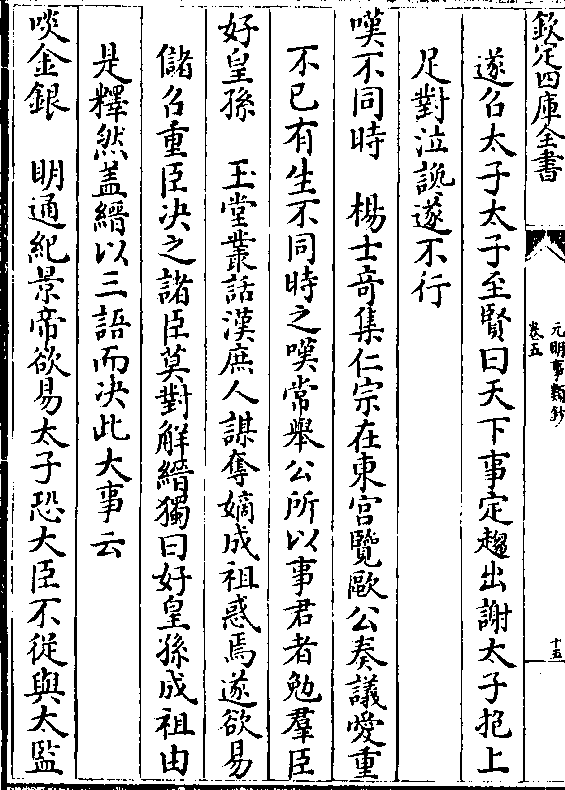 欽定四庫全書
元明事類鈔
卷五
十五
遂召太子太子至賢曰天下事定趨出謝太子抱上
足對泣讒遂不行
嘆不同時　楊士竒集仁宗在東宫覽歐公奏議愛重
不已有生不同時之嘆常舉公所以事君者勉羣臣
好皇孫　玉堂叢話漢庶人謀奪嫡成祖惑焉遂欲易
儲召重臣决之諸臣莫對解縉獨曰好皇孫成祖由
是釋然盖縉以三語而决此大事云
啖金銀　明通紀景帝欲易太子恐大臣不從與太監